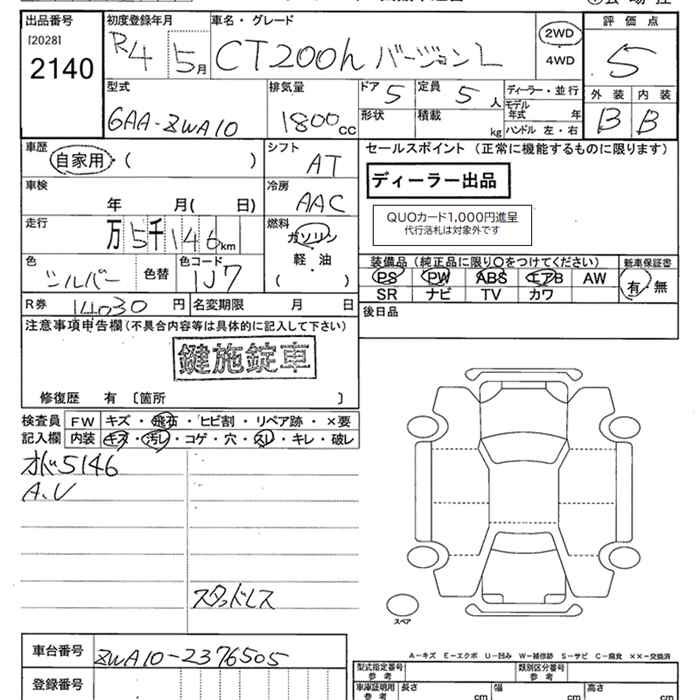 出品番号
[2028]
2140
初度登録年月
R4 5月
車名・グレード
CT200h バージョンL
2WD
4WD
評価点
5
外装 内装
B B
型式
6AA-ZWA10
排気量
1800cc
ドア 5
形状
定員 5人
積載 kg
ディーラー・並行
モデル年式 年式
ハンドル 左・右
車歴
自家用・( )
シフト
AT
セールスポイント (正常に機能するものに限ります)
ディーラー出品
QUOカード1,000円進呈
代行落札は対象外です
車検
年 月( 日)
冷房
AAC
走行
万5千146km
燃料
ガソリン
軽・油
( )
色
シルバー
色替
色コード
1J7
装備品(純正品に限り○をつけてください)
PS PW ABS エアB AW
SR ナビ TV カワ
新車保証書
有・無
R券 14030円
名変期限 月 日
後日品
注意事項申告欄(不具合内容等は具体的に記入して下さい)
鍵施錠車
修復歴 有〔箇所 〕
検査員記入欄
FW キズ・飛石・ヒビ割・リペア跡・×要
内装 キズ・汚レ・コゲ・穴・スレ・キレ・破レ
5146
A.V
スタッドレス
スペア
A-キズ E-エクボ U-凹み W-補修跡 S-サビ C-腐食 ××-交換済
車台番号
ZWA10-2376505
登録番号
型式指定番号
参考
類別区分番号
参考
車庫証明用
参考
長さ cm
幅 cm
高さ cm